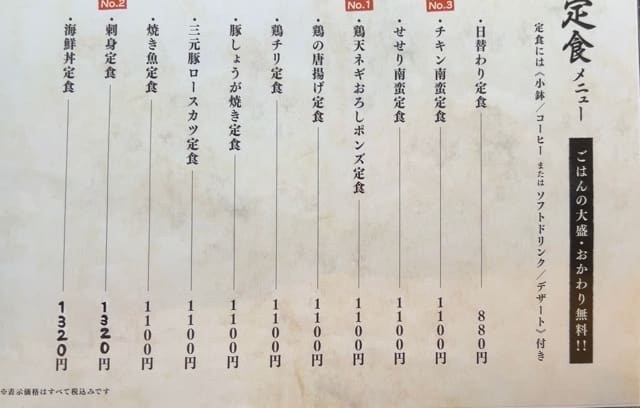 定食メニュー
ごはんの大盛・おかわり無料!!
定食には《小鉢/コーヒー または ソフトドリンク/デザート》付き
・日替わり定食 880円
No.3
・チキン南蛮定食 1100円
・せせり南蛮定食 1100円
No.1
・鶏天ネギおろしポンズ定食 1100円
・鶏の唐揚げ定食 1100円
・鶏チリ定食 1100円
・豚しょうが焼き定食 1100円
・三元豚ロースカツ定食 1100円
・焼き魚定食 1100円
No.2
・刺身定食 1320円
・海鮮丼定食 1320円
※表示価格はすべて税込みです